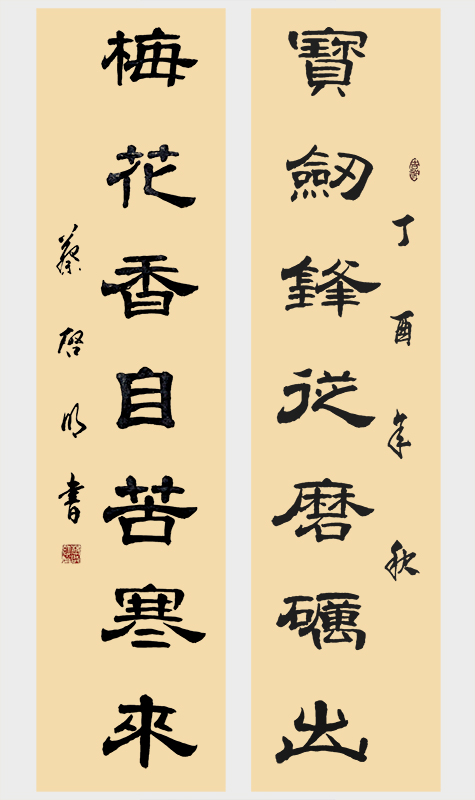 丁酉年秋
寶劒鋒從磨礪出
梅花香自苦寒來
蔡啓明書